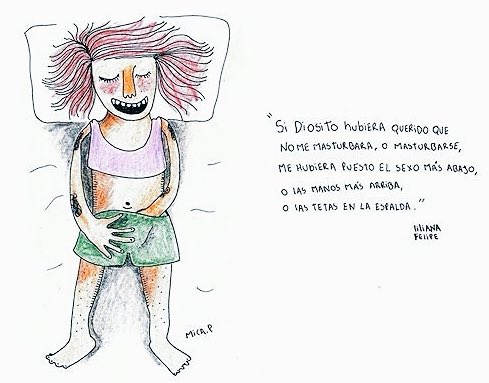 "Si Diosito hubiera querido que
no me masturbara, o masturbarse,
me hubiera puesto el sexo más abajo,
o las manos más arriba,
o las tetas en la espalda."
liliana
Felipe
Mica.P